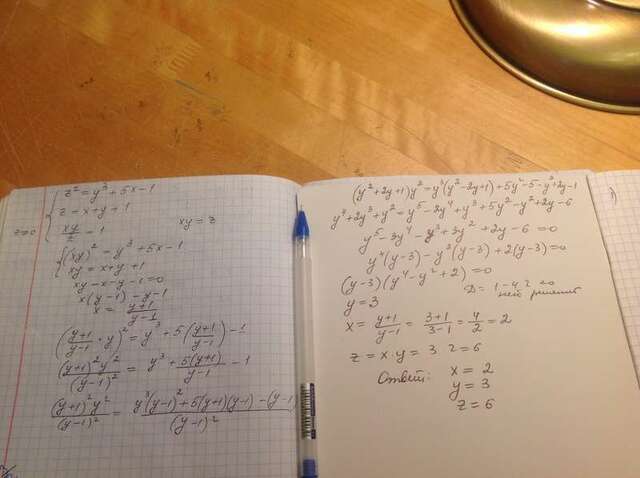 z² = y³ + 5x - 1
z = x + y + 1
z≠0
xy/z = 1
xy = z
(xy)² = y³ + 5x - 1
xy = x + y + 1
xy - x - y - 1 = 0
x(y-1) = y+1
x = (y+1)/(y-1)
((y+1)/(y-1) · y)² = y³ + 5((y+1)/(y-1)) - 1
(y+1)²y²/(y-1)² = y³ + 5(y+1)/(y-1) - 1
(y+1)²y²/(y-1)² = y³(y-1)² + 5(y+1)(y-1) - (y-1)/(y-1)²
(y²+2y+1)y² = y³(y²-2y+1) + 5y² - 5 - y²+2y-1
y⁴+2y³+y² = y⁵-2y⁴+y³+5y²-y²+2y-6
y⁵-3y⁴-y³+3y²+2y-6=0
y⁴(y-3) - y²(y-3) + 2(y-3)=0
(y-3)(y⁴-y²+2)=0
D = 1-4·2<0
нет решений
y=3
x = (y+1)/(y-1) = (3+1)/(3-1) = 4/2 = 2
z = x·y = 3·2=6
Ответ: x = 2
y = 3
z = 6